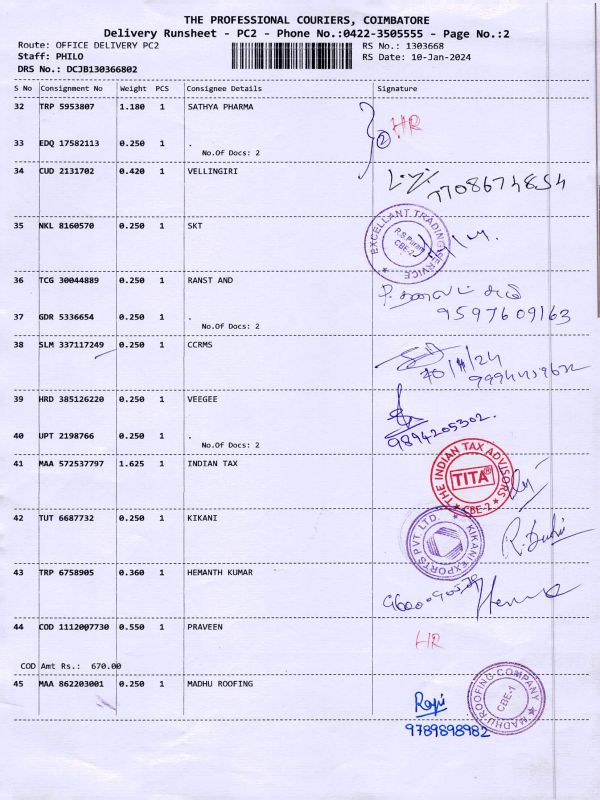 THE PROFESSIONAL COURIERS, COIMBATORE
Delivery Runsheet - PC2 - Phone No.:0422-3505555 - Page No.:2
Route: OFFICE DELIVERY PC2 RS No.: 1303668
Staff: PHILO RS Date: 10-Jan-2024
DRS No.: DCJB130366802
S No Consignment No Weight PCS Consignee Details Signature
32 TRP 5953807 1.180 1 SATHYA PHARMA
2 HR
33 EDQ 17582113 0.250 1 .
No.Of Docs: 2
34 CUD 2131702 0.420 1 VELLINGIRI
7708674854
35 NKL 8160570 0.250 1 SKT
EXCELLANT TRADING SERVICE
R.S Puram
CBE-2
36 TCG 30044889 0.250 1 RANST AND
37 GDR 5336654 0.250 1 .
9597609163
No.Of Docs: 2
38 SLM 337117249 0.250 1 CCRMS
39 HRD 385126220 0.250 1 VEEGEE
40 UPT 2198766 0.250 1 .
9894205302.
No.Of Docs: 2
41 MAA 572537797 1.625 1 INDIAN TAX
THE INDIAN TAX ADVISORS
TITA®
CBE-2
42 TUT 6687732 0.250 1 KIKANI
KIKANI EXPORTS PVT LTD.
43 TRP 6758905 0.360 1 HEMANTH KUMAR
44 COD 1112007730 0.550 1 PRAVEEN
HR
COD Amt Rs.: 670.00
45 MAA 862203001 0.250 1 MADHU ROOFING
MADHU ROOFING COMPANY
CBE-1
Raji
9789898982